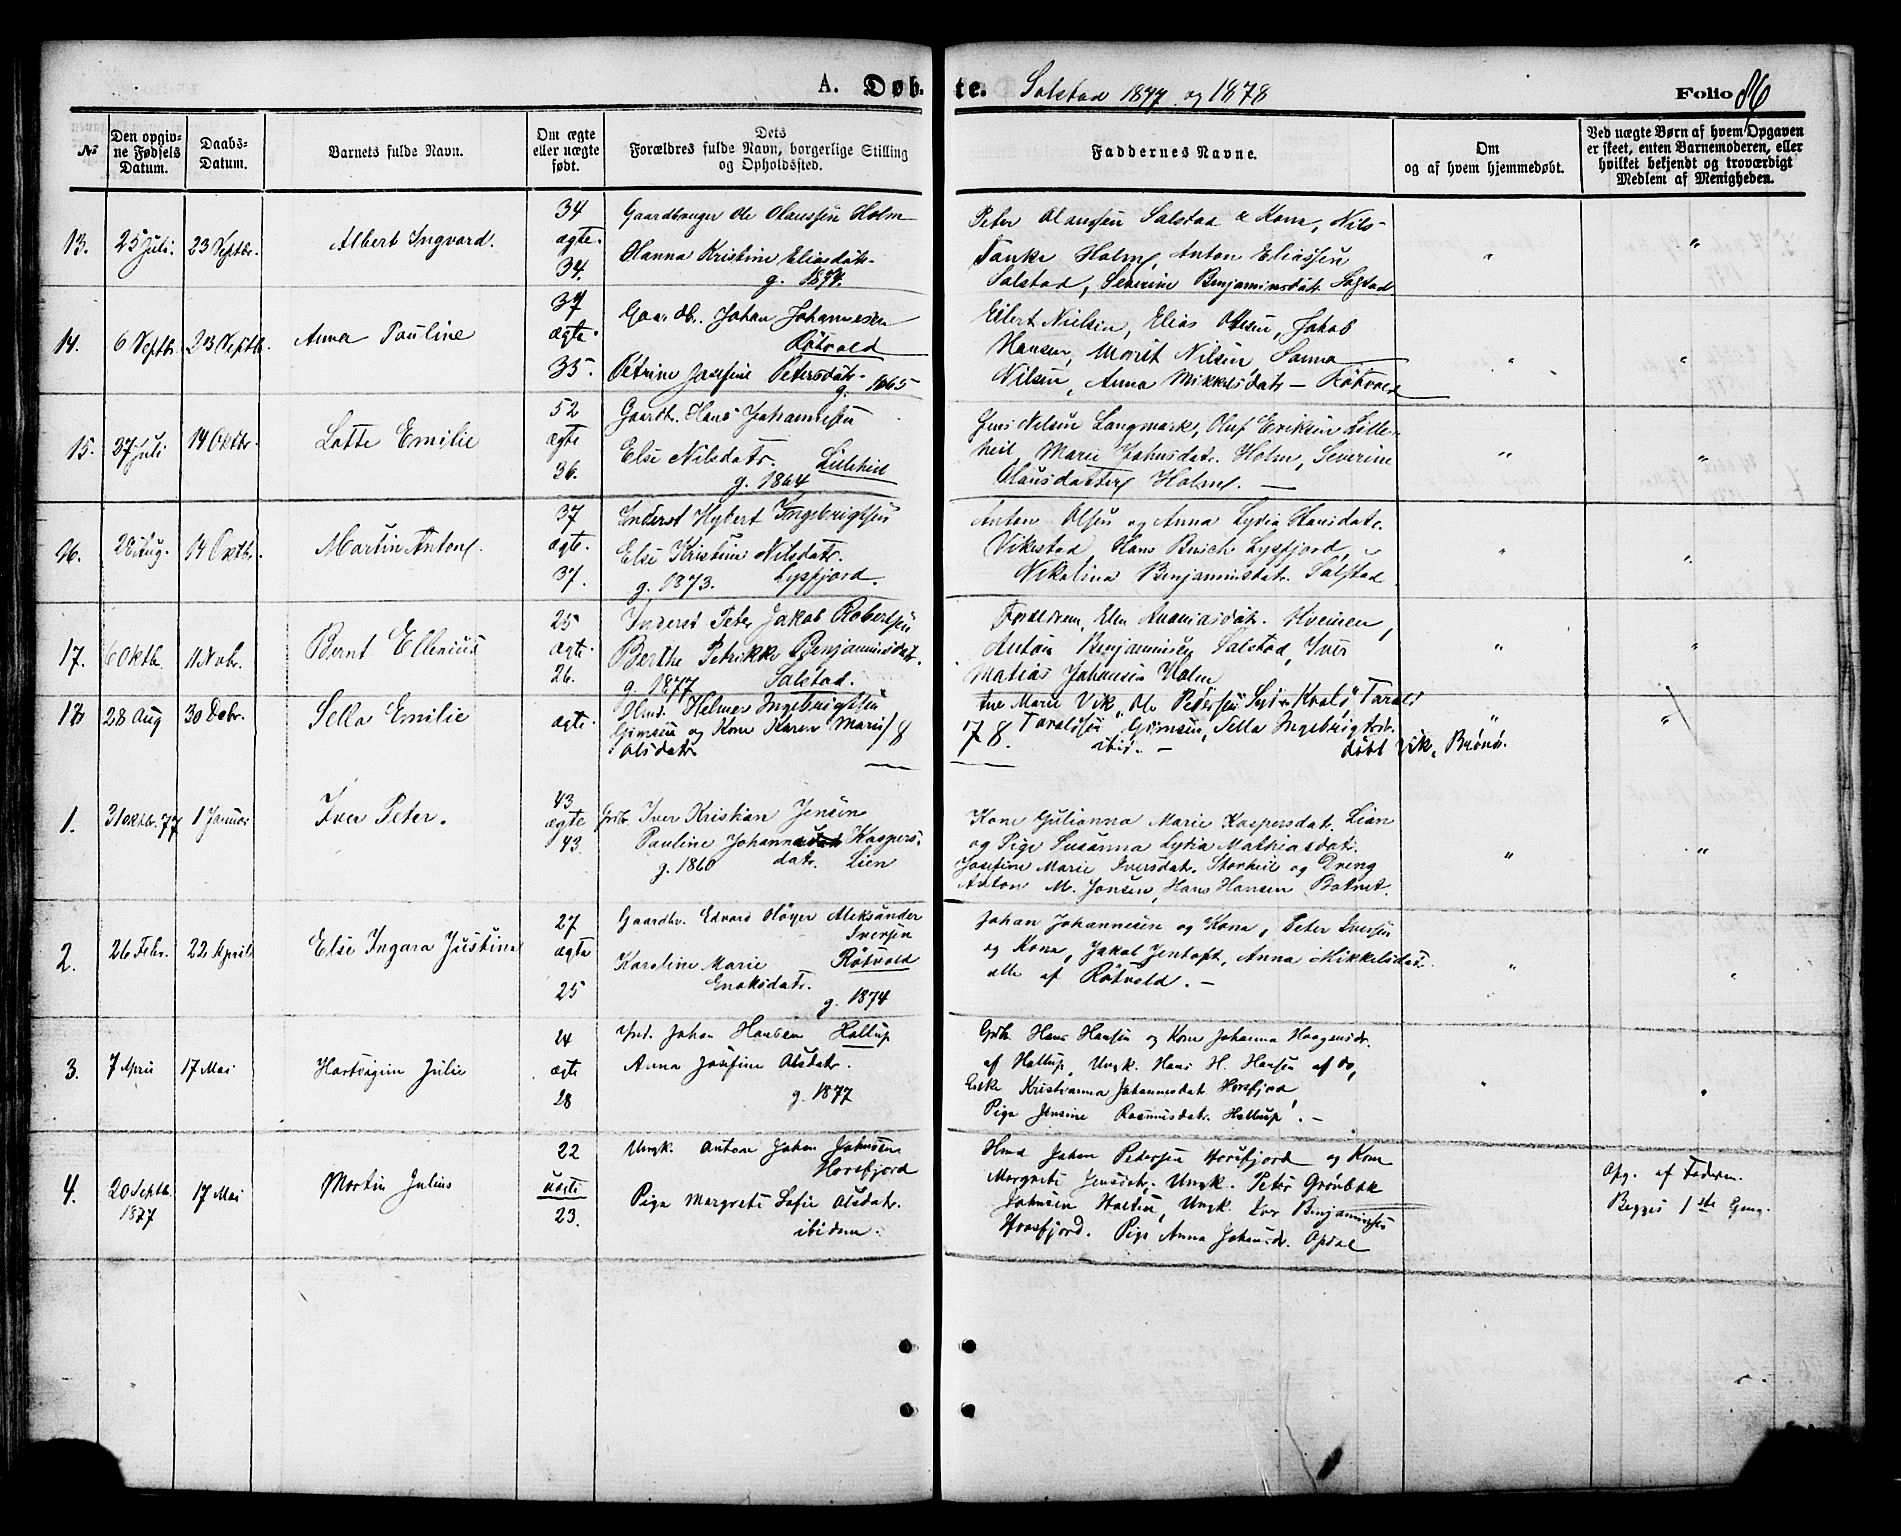 A. Døbte. Salstad 1877 og 1878 Folio 86
№
Den opgivne Fødsels Datum.
Daabs-Datum.
Barnets fulde Navn.
Om ægte eller uægte født.
Dets Forældres fulde Navn, borgerlige Stilling og Opholdssted.
Faddernes Navne.
Om og af hvem hjemmedøbt.
Ved uægte Børn af hvem Opgaven er skeet, enten Barnemoderen, eller hvilket bekjendt og troværdigt Medlem af Menigheden.
13. 25 Juli. 23 Septbr. Albert Ingvard.
34 ægte. 34.
Gaardbruger Ole Olaussen Holm
Olanna Kristine Eliasdatr.
g. 1874.
Peter Olaussen Salstad & Kone, Nils
Tanke Holm, Anton Eliassen
Salstad, Severine Benjaminsdatr. Salstad
14. 6 Septbr. 23 Septbr. Anna Pauline
37 ægte. 35.
Gaardbr. Johan Johannesen
Røtvold
Petrine Josefine Petersdatr.
g. 1865
Eilert Nielsen, Elias Olsen, Jakob
Hansen, Morist Nilsen, Sanna
Nilsen, Anna Mikkelsdatr — Røtvold
15. 27 Juli 14 Oktbr. Lotte Emilie
52 ægte 36.
Gaardbr. Hans Johannesen
Else Nilsdatr. Lilleheil
g. 1864
Jens Nilsen Langmark, Oluf Eriksen Lille-
heil, Marie Johnsdatr. Holm, Severine
Olausdatter Holm. —
16. 28 Aug. 14 Oktbr. Martin Anton.
37 ægte. 37.
Inderst Hybert Ingebrigtsen
Else Kristine Nilsdatr.
g. 1873. Lysfjord.
Anton Olsen og Anna Lydia Hansdatr.
Vikestad, Hans Busch Lysfjord,
Nikolina Benjaminsdatr. Salstad
17. 6 Oktb. 11 Novbr. Bernt Ellerius
25 ægte. 26.
Inderst Peter Jakob Robertsen
Berthe Petrikke Benjaminsdatr.
g. 1877 Salstad.
Forældrene, Elen Ananiasdatr. Kveinen,
Anton Benjaminsen Salstad, Iver
Matias Johansen Holm
18 28 Aug 30 Debr. Sella Emilie
ægte.
Hmd. Helmer Ingebrigtsen
Gimsen og Kone Karen Marie
Olsdatr.
Ane Marie Vik, Ole Pedersen Kvalø, Tarald
Taraldsen Gimsen, Sella Ingebrigtsdr.
ibid. — døbt Vik, Brønø.
1878.
1. 31 Oktbr. 77 1 Januar Iver Peter.
43 ægte 43.
Grdbr. Iver Kristian Jensen
Pauline Johanna Kaspers-
g. 1860 datr. Lien
Kone Gulianna Marie Kaspersdatr. Lian
og Pige Susanna Lydia Mathiasdatr.
Josefine Marie Iversdatr. Storheil og Dreng
Anton M. Jonsen, Hans Hansen Botnet.
2. 26 Febr. 22 April Else Ingara Justine
27 ægte 25
Gaardbr. Edvard Høyer Aleksander
Iversen
Karoline Marie Røtvold
Enoksdatr.
g. 1874
Johan Johannesen og Kone, Peter Iversen
og Kone, Jakob Jentoft, Anna Mikkelsdatr.
alle af Røtvold. —
3. 7 April 17 Mai Hartvigine Julie
24 ægte 28
Ind. Johan Hansen Hallup
Anna Josefine Olsdatr.
g. 1877
Grdb. Hans Hansen og Kone Johanna Haagensdr.
af Hallup, Ungk. Hans H. Hansen af Do,
Enke Kristianna Johannesdatr. Horsfjord
Pige Jensine Rasmusdatr. Hallup. —
4. 20 Septb. 1877 17 Mai Martin Julius
22 uægte 23.
Ungk. Anton Johan Johnsen
Horsfjord
Pige Margrete Sofie Olsdatr.
ibidem.
Hmd Johan Pedersen Horsfjord og Kone
Margrete Jensdatr. Ungk. Peter Grønbæk
Johnsen Ungk. Iver Benjaminsen
Horsfjord. Pige Anna Johansdr. Opdal
Opg. af Faderen.
Begges 1ste Gang.